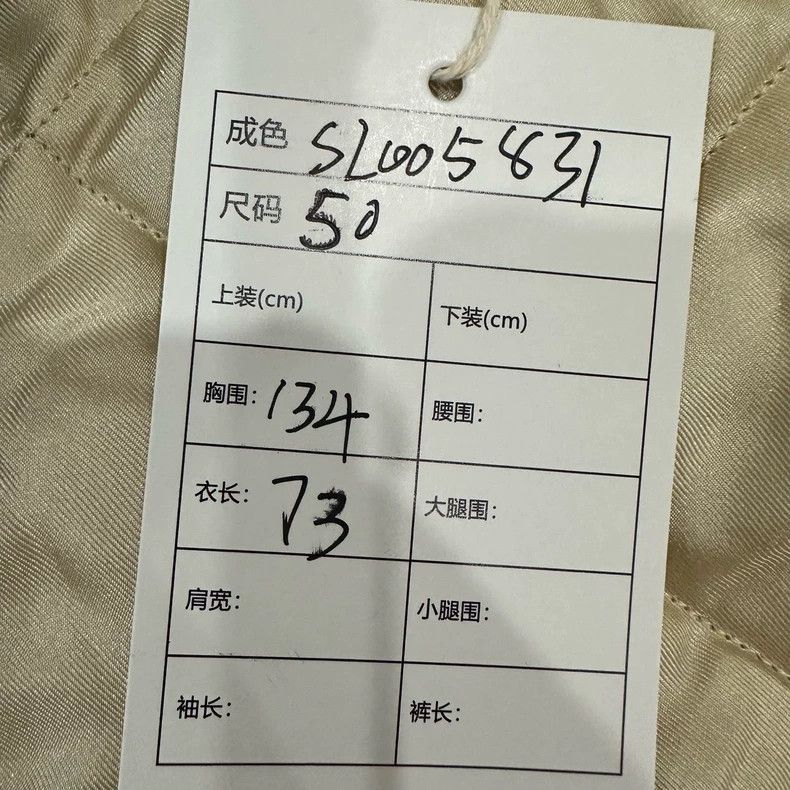 成色 SL005831
尺码 50
上装(cm) 下装(cm)
胸围: 134 腰围:
衣长: 73 大腿围:
肩宽: 小腿围:
袖长: 裤长: